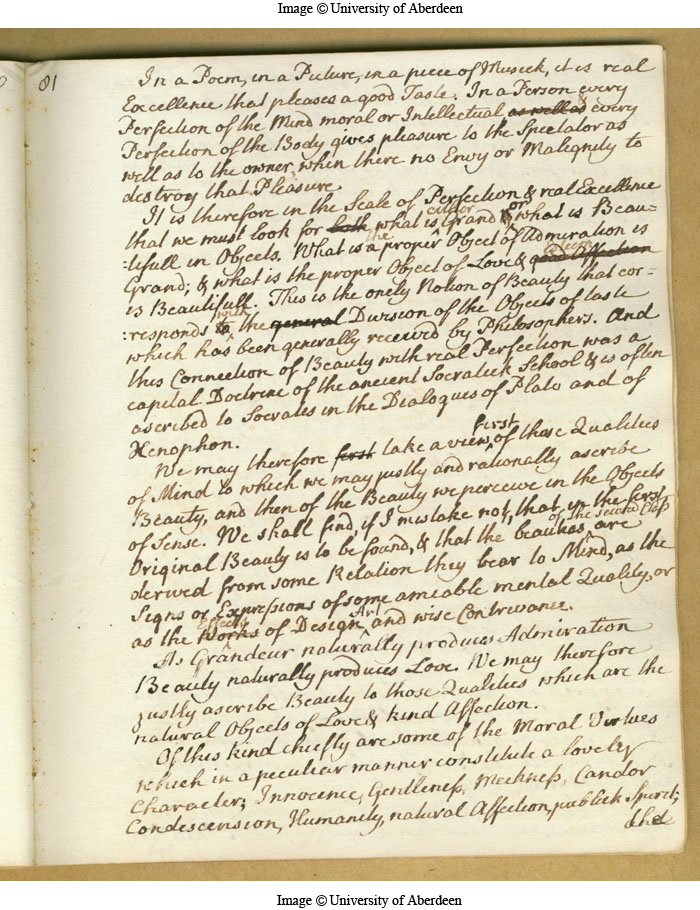 Image © University of Aberdeen
81
In a Poem, in a Picture, in a piece of Musick, it is real
Excellence that pleases a good Taste. In a Person every
Perfection of the Mind moral or Intellectual as well as & every
Perfection of the Body gives pleasure to the Spectator as
well as to the owner, when there no Envy or Malignity to
destroy that Pleasure
It is therefore in the Scale of Perfection & real Excellence
either or
that we must look for both what is Grand & what is Beau-
the
:tifull in Objects. What is a proper Object of Admiration is
esteem
Grand; & what is the proper Object of Love & good Affection
is Beautifull. This is the onely Notion of Beauty that cor-
with
:responds to the general Division of the Objects of taste
which has been generally received by Philosophers. And
this Connection of Beauty with real Perfection was a
capital Doctrine of the ancient Socratick School & is often
ascribed to Socrates in the Dialogues of Plato and of
Xenophon.
first
We may therefore first take a view, of those Qualities
of Mind to which we may justly and rationally ascribe
Beauty, and then of the Beauty we perceive in the Objects
of Sense. We shall find, if I mistake not, that in the first
of the second Class
Original Beauty is to be found, & that the beauties are
derived from some Relation they bear to Mind, as the
Signs or Expressions of some amiable mental Quality, or
Effects Art
as the Works of Design and wise Contrivance.
As Grandeur naturally produces Admiration
Beauty naturally produces Love. We may therefore
justly ascribe Beauty to those Qualities which are the
natural Objects of Love & kind Affection.
Of this kind chiefly are some of the Moral Virtues
which in a peculiar manner constitute a lovely
Character; Innocence, Gentleness, Meekness, Candor
Condescension, Humanity, natural Affection, publick Spirit;
Image © University of Aberdeen